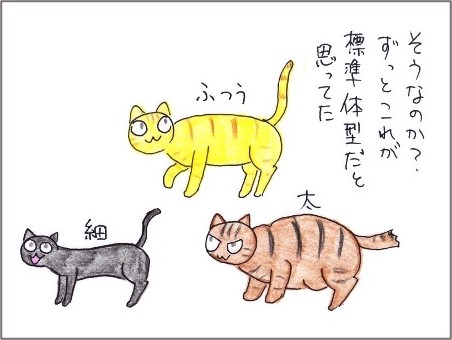 そうなのか？
ずっとこれが
標準体型だと
思ってた
ふつう
細
太